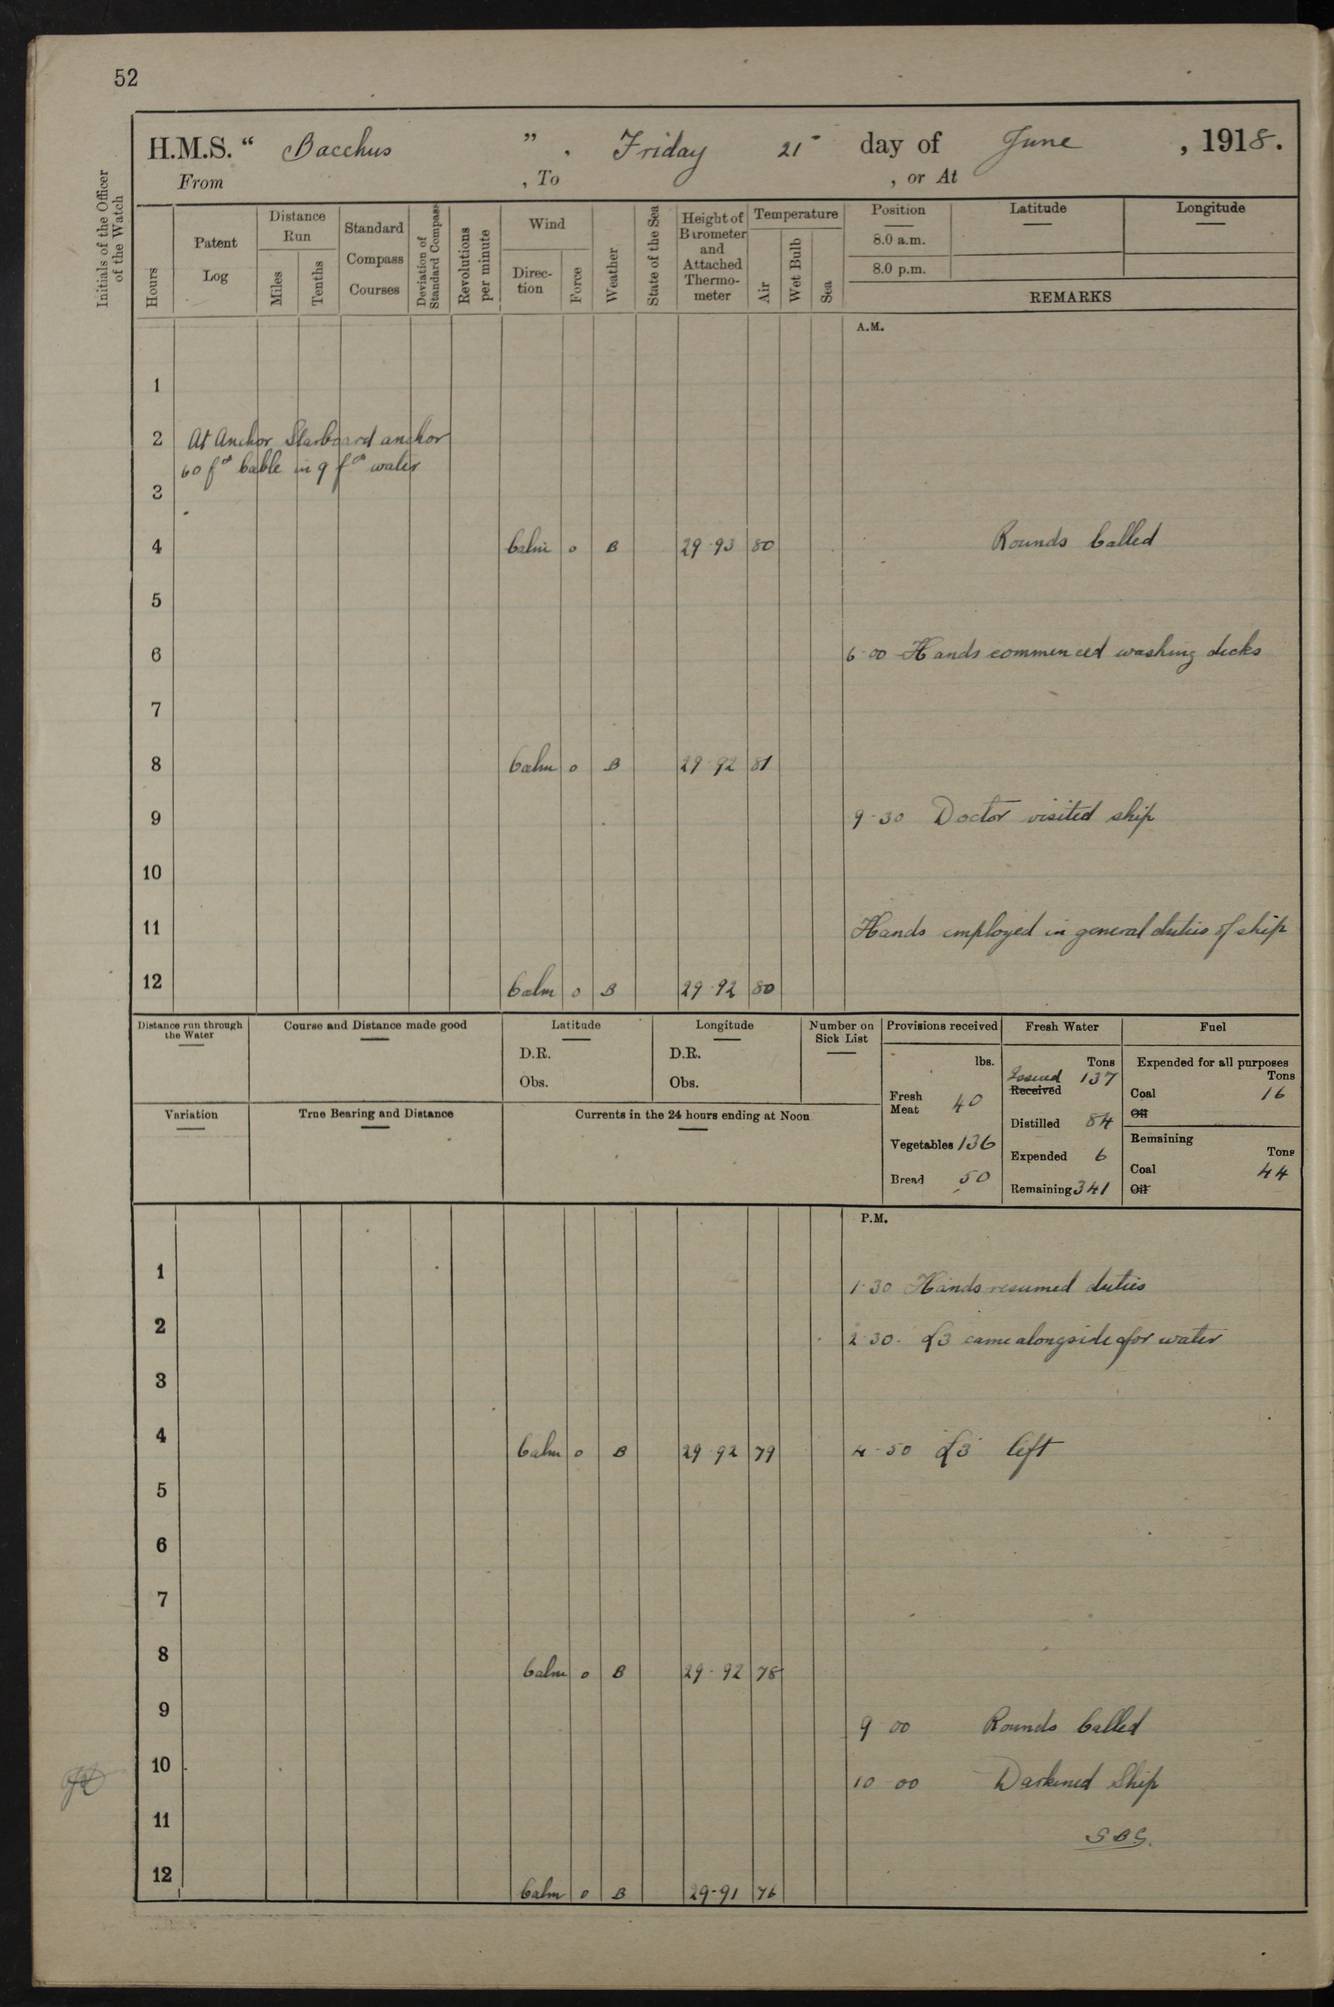 52
H.M.S. “ Bacchus ” . Friday 21 day of June , 1918.
From , To , or At
Initials of the Officer of the Watch
Hours
Patent Log
Distance Run
Miles
Tenths
Standard Compass Courses
Deviation of Standard Compass
Revolutions per minute
Wind
Direc-tion
Force
Weather
State of the Sea
Height of Barometer and Attached Thermo-meter
Temperature
Air
Wet Bulb
Sea
Position Latitude Longitude
8.0 a.m.
8.0 p.m.
REMARKS
A.M.
1
2 At Anchor Starboard anchor
60 fms Cable in 9 fms water
3
4 Calm 0 B 29.93 80 Rounds Called
5
6 6.00 Hands commenced washing decks
7
8 Calm 0 B 29.92 81
9 9.30 Doctor visited ship
10
11 Hands employed in general duties of ship
12 Calm 0 B 29.92 80
Distance run through the Water
Course and Distance made good
Latitude
D.R.
Obs.
Longitude
D.R.
Obs.
Number on Sick List
Variation
True Bearing and Distance
Currents in the 24 hours ending at Noon
Provisions received
lbs.
Fresh Meat 40
Vegetables 136
Bread 50
Fresh Water
Tons
Issued 137
Received
Distilled 84
Expended 6
Remaining 341
Fuel
Expended for all purposes
Tons
Coal 16
Oil
Remaining
Tons
Coal 44
Oil
P.M.
1 1.30 Hands resumed duties
2 2.30. £3 came alongside for water
3
4 Calm 0 B 29.92 79 4.50 £3 left
5
6
7
8 Calm 0 B 29.92 78
9 9 00 Rounds Called
10 10 00 Darkened Ship
11 SBG.
12 Calm 0 B 29.91 76